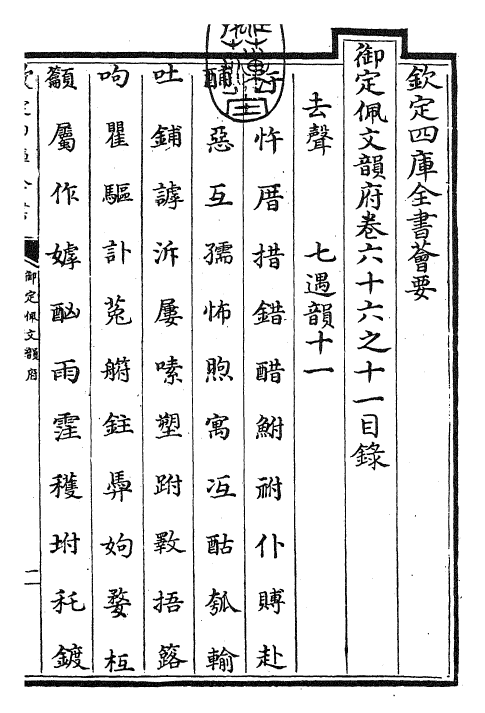 欽定四庫全書薈要
御定佩文韻府卷六十六之十一目錄
去聲 七遇韻十一
忤厝措錯醋鮒祔仆賻赴
酺惡互孺怖煦寓冱酤瓠輸
吐鋪謼泝屢嗉塑跗斁捂簬
呴瞿驅訃菟䠵鉒㢸姁婺枑
籲屬作嫭酗雨霔穫坿秅鍍
御定佩文韻府
二